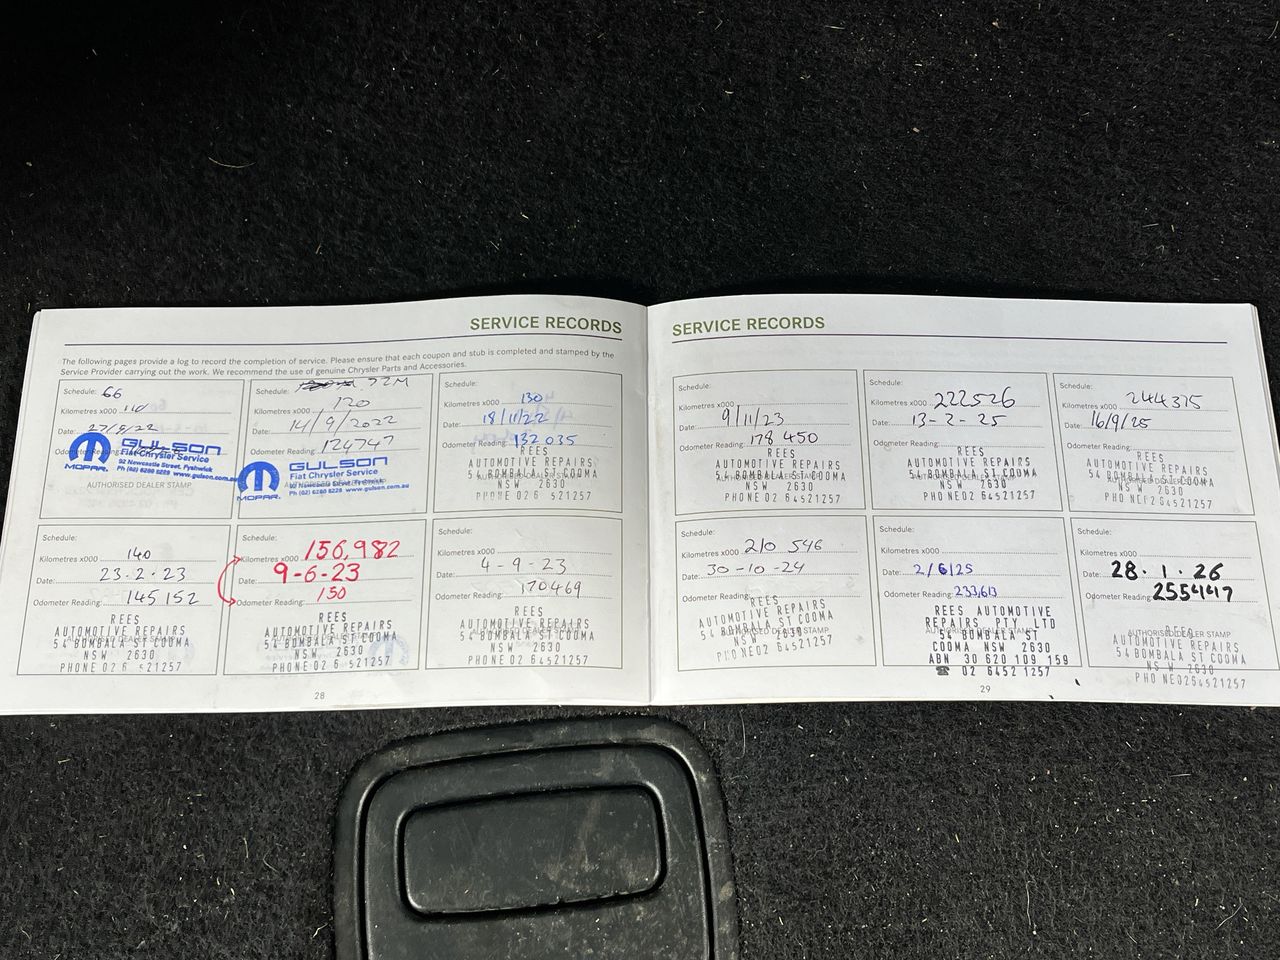 SERVICE RECORDS
The following pages provide a log to record the completion of service. Please ensure that each coupon and stub is completed and stamped by the
Service Provider carrying out the work. We recommend the use of genuine Chrysler Parts and Accessories.
Schedule: 66
Kilometres x000 110
Date:
Odometer Reading:
GULSON
Fiat Chrysler Service
92 Newcastle Street, Fyshwick
Ph (02) 6280 8228 www.gulson.com.au
MOPAR.
AUTHORISED DEALER STAMP
Schedule: 72M
Kilometres x000 120
Date: 14/9/2022
Odometer Reading: 124747
GULSON
Fiat Chrysler Service
92 Newcastle Street, Fyshwick
Ph (02) 6280 8228 www.gulson.com.au
MOPAR.
AUTHORISED DEALER STAMP
Schedule:
Kilometres x000 130
Date: 18/11/22
Odometer Reading: 132 035
REES
AUTOMOTIVE REPAIRS
AUTHORISED DEALER STAMP
54 BOMBALA ST COOMA
NSW 2630
PHONE 02 6 521257
Schedule:
Kilometres x000 140
Date: 23.2.23
Odometer Reading: 145 152
REES
AUTOMOTIVE REPAIRS
AUTHORISED DEALER STAMP
54 BOMBALA ST COOMA
NSW 2630
PHONE 02 6 521257
Schedule:
Kilometres x000 156,982
Date: 9-6-23
Odometer Reading: 150
REES
AUTOMOTIVE REPAIRS
AUTHORISED DEALER STAMP
54 BOMBALA ST COOMA
NSW 2630
PHONE 02 6 521257
Schedule:
Kilometres x000
Date: 4-9-23
Odometer Reading: 170469
REES
AUTOMOTIVE REPAIRS
AUTHORISED DEALER STAMP
54 BOMBALA ST COOMA
NSW 2630
PHONE 02 6 521257
28
SERVICE RECORDS
Schedule:
Kilometres x000
Date: 9/11/23
Odometer Reading: 178 450
REES
AUTOMOTIVE REPAIRS
54 BOMBALA ST COOMA
AUTHORISED DEALER STAMP
NSW 2630
PHONE 02 64521257
Schedule:
Kilometres x000 222526
Date: 13-2-25
Odometer Reading:
REES
AUTOMOTIVE REPAIRS
54 BOMBALA ST COOMA
AUTHORISED DEALER STAMP
NSW 2630
PHONE 02 64521257
Schedule:
Kilometres x000 244375
Date: 16/9/25
Odometer Reading:
REES
AUTOMOTIVE REPAIRS
54 BOMBALA ST COOMA
AUTHORISED DEALER STAMP
NSW 2630
PHONE 02 64521257
Schedule:
Kilometres x000 210 546
Date: 30-10-24
Odometer Reading:
REES
AUTOMOTIVE REPAIRS
54 BOMBALA ST COOMA
AUTHORISED DEALER STAMP
NSW 2630
PHONE 02 64521257
Schedule:
Kilometres x000
Date: 2/6/25
Odometer Reading: 233,613
REES AUTOMOTIVE
REPAIRS PTY LTD
AUTHORISED DEALER STAMP
54 BOMBALA ST
COOMA NSW 2630
ABN 30 620 109 159
☎ 02 6452 1257
Schedule:
Kilometres x000
Date: 28.1.26
Odometer Reading:
REES
AUTHORISED DEALER STAMP
AUTOMOTIVE REPAIRS
54 BOMBALA ST COOMA
NSW 2630
PHONE 02 64521257
29